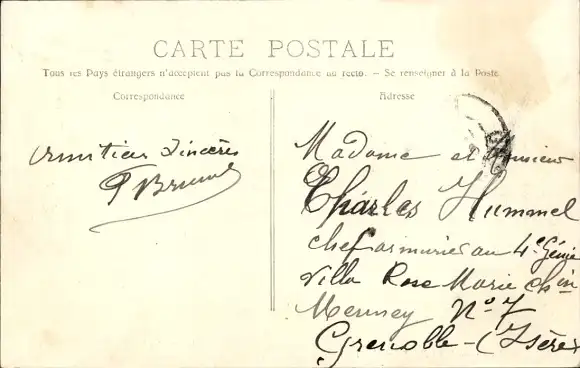 CARTE POSTALE
Tous les Pays étrangers n'acceptent pas la Correspondance au recto. – Se renseigner à la Poste
Correspondance
Adresse
Amitiés Sincères
Madame et Monsieur
Charles Hummel
chef armurier au 4e Génie
Villa Rose Marie chin
N° 7
Grenoble – (Isère)